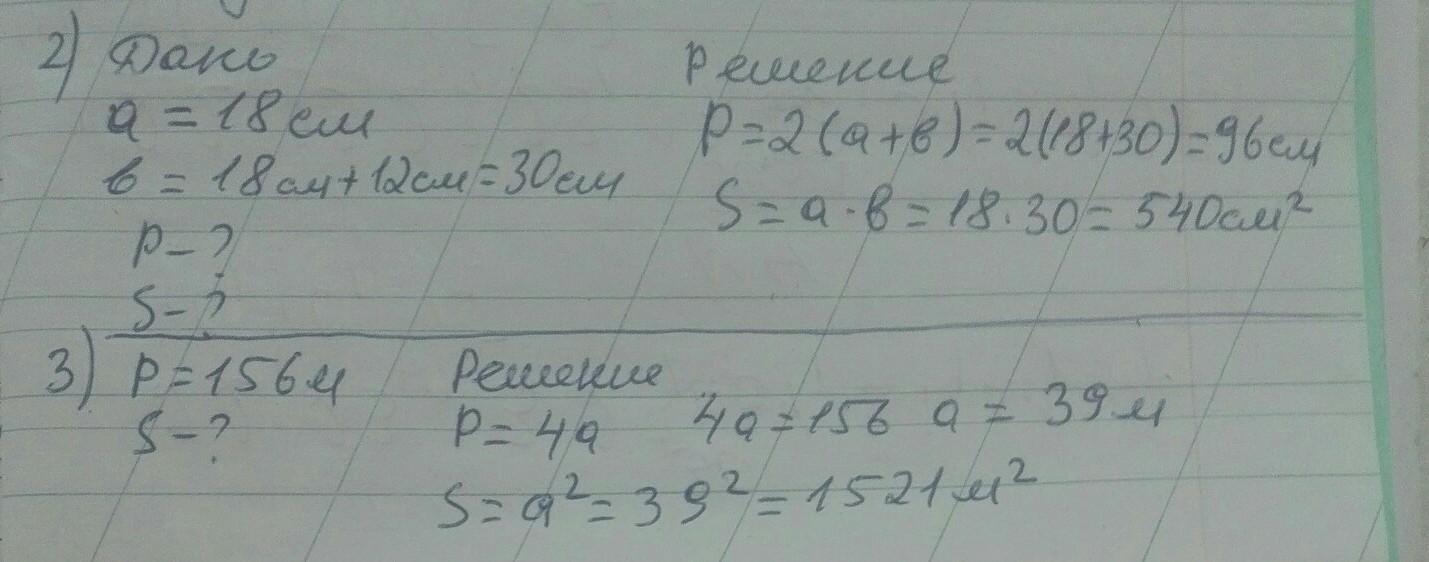 2) Дано
a = 18 см
в = 18 см + 12 см = 30 см
P - ?
S - ?
Решение
P = 2 (a + в) = 2(18+30) = 96 см
S = a · в = 18 · 30 = 540 см²
3) P = 156 м
S - ?
Решение
P = 4a 4a = 156 a = 39 м
S = a² = 39² = 1521 м²